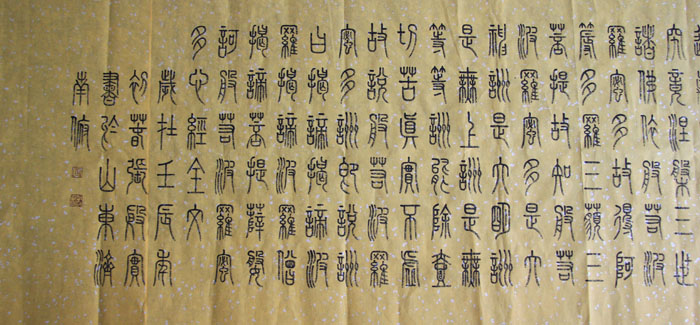 究竟涅槃三世
諸佛依般若波
羅蜜多故得阿
耨多羅三藐三
菩提故知般若
波羅蜜多是大
神咒是大明咒
是無上咒是無
等等咒能除壹
切苦真實不虛
故說般若波羅
蜜多咒即說咒
曰揭諦揭諦波
羅揭諦波羅僧
揭諦菩提薩婆
訶般若波羅蜜
多心經全文
歲在壬辰年
初春張殿實
書於山東濟
南府